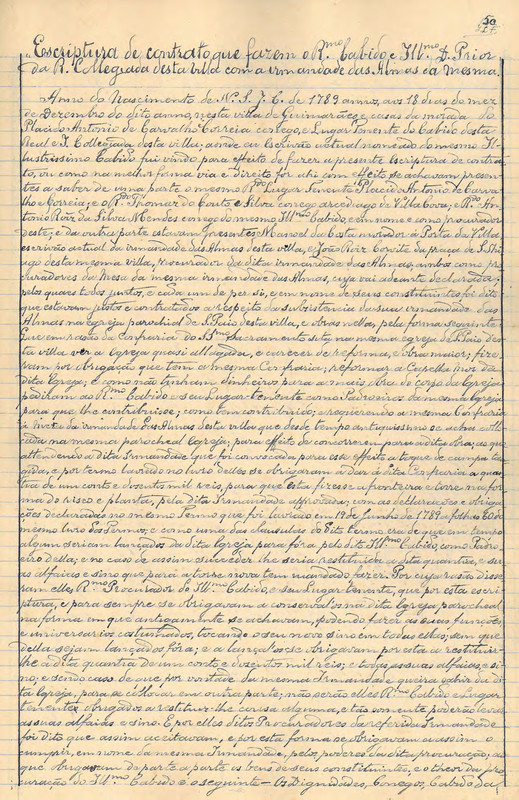 50
Escriptura de contrato que fazem o R.mo Cabido e Ill.mo D. Prior
da R. Collegiada desta villa com a irmandade das Almas da mesma.
Anno do Nascimento de N. S. J. C. de 1789 annos, aos 18 dias do mez
de Dezembro do dito anno, nesta villa de Guimarães e casas da morada do
Placido Antonio de Carvalho Correia conego, e Lugar Tenente do Cabido desta
Real e I. Collegiada desta villa; aonde eu Escrivão actual nomeado do mesmo Il-
lustrissimo Cabido fui vindo para effeito de fazer a presente Escriptura de contra-
to, ou como na melhor forma via e direito for ahi com effeito se achavam presen-
tes a saber de uma parte o mesmo R.do Lugar Tenente Placido Antonio de Carva-
lho e Correia; e o R.do Thomaz do Couto e Silva conego arcediago de Villa Cova; e R.do An-
tonio Roiz da Silva Mendes conego do mesmo Ill.mo Cabido, em nome e como procurador
deste; e da outra parte estavam presentes Manoel da Costa morador á Porta da Villa
escrivão actual da irmandade das Almas desta villa, e João Roiz da praça de S. Thi-
ago desta mesma villa, procurador da dita irmandade das Almas, ambos como pro-
curadores da Mesa da mesma irmandade das Almas, cuja vai adeante declarada;
pelos quaes todos juntos, e cada um de per si, e em nome de seus constituintes foi dito
que estavam justos e contratados a respeito da subsistencia da sua irmandade das
Almas na egreja parochial de S. Paio desta villa, e obras nella, pela forma seguinte:
Que em rasão da Confraria do SS. Sacramento sita na mesma egreja de S. Paio des-
ta villa ver a Egreja quasi allagada, e carecer de reforma, e obra maior; fize-
vam por obrigação que tem a mesma Confraria; reformar a Capella mor da
dita Egreja; e como não tinham dinheiros para a mais obra do corpo da Egreja
pediram ao R.mo Cabido e o seu Lugar-Tenente como Padroeiros da mesma Egreja
para que lhe contribuisse; como tem contribuido; e requerendo a mesma Confraria
á Mesa da irmandade das Almas desta villa que desde tempo antiquissimo se acha collo-
cada na mesma parocheal Egreja; para effeito de concorrerem para a dita obra; ao que
attendendo a dita Irmandade que foi convocada para esse effeito a toque de campa tan-
gida; e por termo lavrado no livro delles se obrigaram a dar á dita Confraria a quan-
tia de um conto e duzentos mil reis, para que esta fizesse a fronteira e torre na for-
ma do risco e planta, pela dita Irmandade approvada, com as declarações e obriga-
ções declaradas no mesmo Termo que foi lavrado em 19 de Junho de 1789 a folhas 60 do
mesmo livro dos Termos, e como uma das clausulas do dito termo era de que em tempo
algum seriam lançados da dita Egreja para fóra pelo dito Ill.mo Cabido, como Padro-
eiro della; e no caso de assim succeder lhe seria restituida a dita quantia, e su-
as alfaias e sino que para a torre nova tem mandado fazer. Por cuja rasão disse-
ram elles R.mo Procurador do Ill.mo Cabido, e seu Lugar Tenente, que por esta escri-
ptura, e para sempre se obrigavam a conserval-os na dita Egreja parocheal
na forma em que antigamente se achavam, podendo fazer as suas funções
e universarios costumados, tocando o seu novo sino em todas ellas; sem que
della sejam lançados fóra; e a lançal-os se obrigavam por esta a restituir-
lhe a dita quantia de um conto e duzentos mil reis; e todas as suas alfaias e si-
no; e sendo caso de que por vontade da mesma Irmandade queira sahir da di-
ta Egreja, para se collocar em outra parte; não serão elles R.mo Cabido e Lugar
tenente obrigados a restituir-lhe cousa alguma, e tão somente poderão levar
as suas alfaias e sino. E por elles ditos Procuradores da referida Irmandade
foi dito que assim acceitavam, e por esta forma se obrigavam a assim o
cumprir, em nome da mesma Irmandade, pelos poderes da dita procuração; ao
que obrigavam de parte a parte os bens de seus constituintes, e o theor da pro-
curação do Ill.mo Cabido é o seguinte - Os Dignidades, Conegos, Cabido da